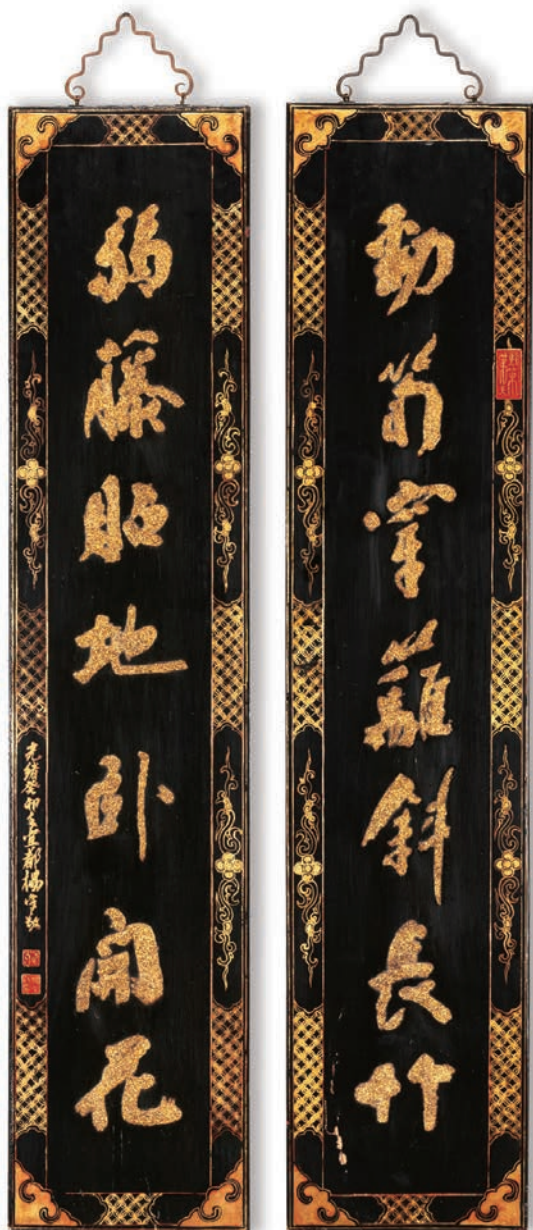 勁笋穿籬斜長竹
弱藤貼地卧開花
光緒癸卯宜都楊守敬